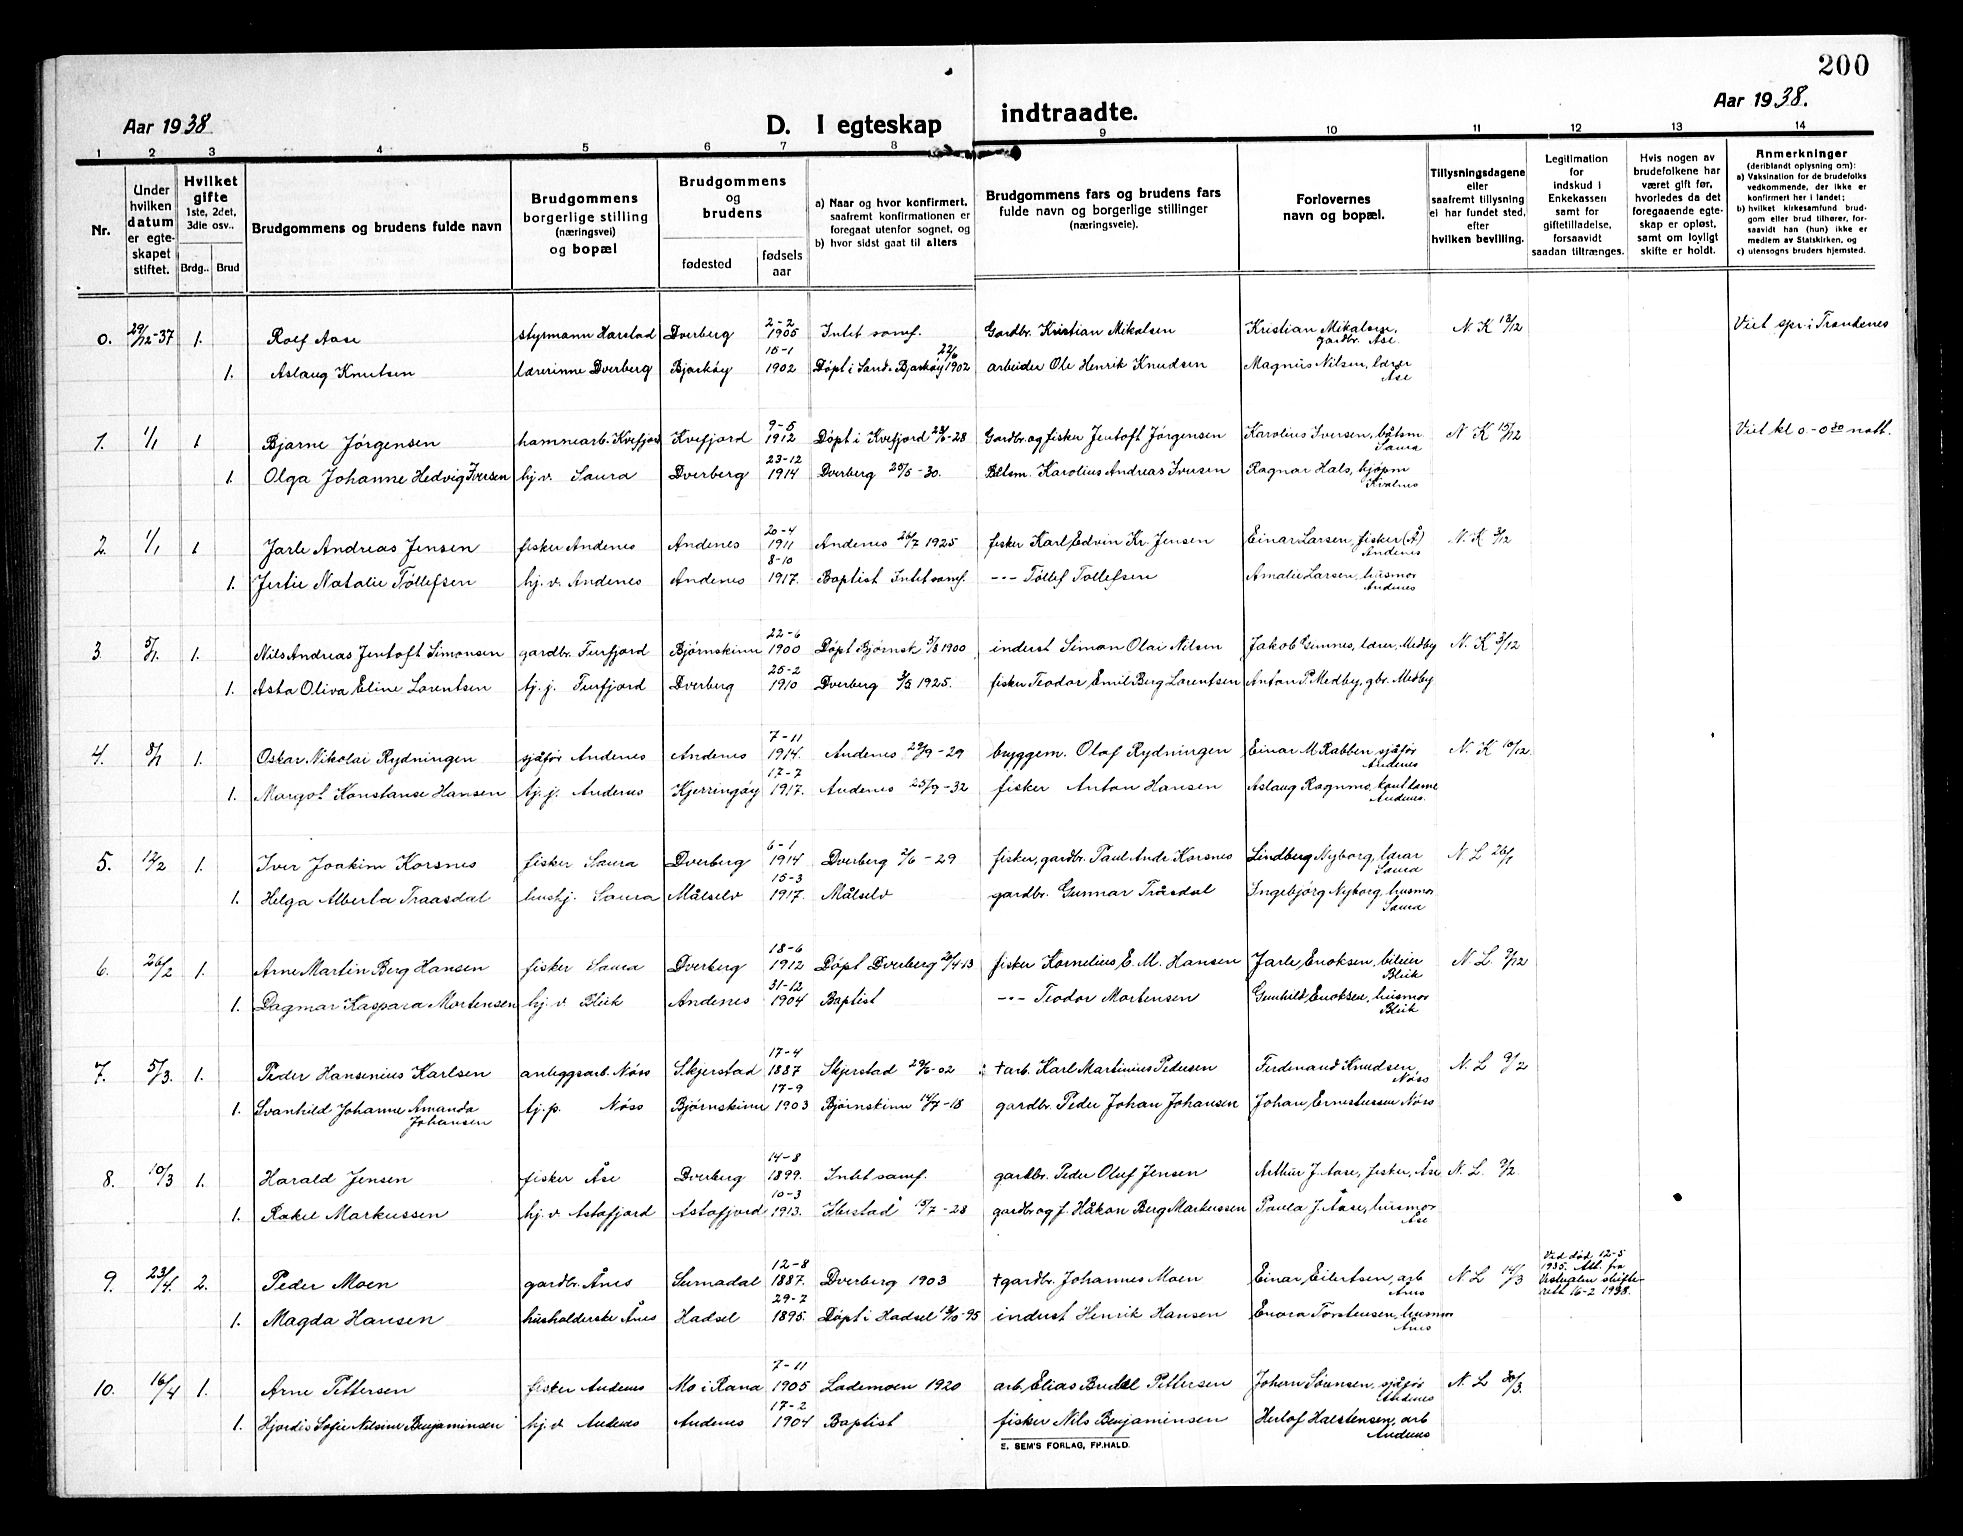 200
Aar 1938
D. I egteskap indtraadte.
Aar 1938.
1 2 3 4 5 6 7 8 9 10 11 12 13 14
Nr.
Under hvilken datum er egteskapet stiftet.
Hvilket gifte 1ste, 2det, 3die osv..
Brdg.. Brud
Brudgommens og brudens fulde navn
Brudgommens borgerlige stilling (næringsvei) og bopæl
Brudgommens og brudens
fødested
fødsels aar
a) Naar og hvor konfirmert, saafremt konfirmationen er foregaat utenfor sognet, og
b) hvor sidst gaat til alters
Brudgommens fars og brudens fars fulde navn og borgerlige stillinger (næringsveie).
Forlovernes navn og bopæl.
Tillysningsdagene eller saafremt tillysning ei har fundet sted, efter hvilken bevilling.
Legitimation for indskud i Enkekassen samt for giftetilladelse, forsaavidt saadan tiltrænges.
Hvis nogen av brudefolkene har været gift før, hvorledes da det foregaaende egteskap er opløst, samt om lovligt skifte er holdt.
Anmerkninger (deriblandt oplysning om): a) Vaksination for de brudefolks vedkommende, der ikke er konfirmert her i landet; b) hvilket kirkesamfund brudgom eller brud tilhører, forsaavidt han (hun) ikke er medlem av Statskirken, og c) utensogns bruders hjemsted.
0. 29/12-37 1. Rolf Aase styrmann Harstad Dverberg 2-2 1905 Intet samf. Gardbr. Kristian Mikalsen Kristian Mikalsen, gardbr. Åse N K 18/12 Viet spr. i Trondenes
1. Aslaug Knutsen lærerinne Dverberg Bjarkøy 15-1 1902 Døpt i Sand. Bjarkøy 22/6 1902 arbeider Ole Henrik Knudsen Magnus Nilsen, lærer Åse
1. 1/1 1 Bjarne Jørgensen hamnearb. Kvefjord Kvefjord 9-5 1912 Døpt i Kvefjord Gardbr. og fisker Jentoft Jørgensen Karolius Iversen, båtsm Saura N K 15/12 Viet kl 0-0 30 natt.
1. Olga Johanne Hedvig Iversen hj. v. Saura Dverberg 23-12 1914 Dverberg 25/5-30. Båtsm. Karolius Andreas Iversen Ragnar Hals, kjøpm Kvalnes
2. 1/1 1 Jarle Andreas Jensen fisker Andenes Andenes 20-4 1911 Andenes 26/7 1925 fisker Karl Edvin Kr. Jensen Einar Larsen, fisker (Å) Andenes N. K 3/12
1. Jertie Natalie Tøllefsen hj. v. Andenes Andenes 8-10 1917. Baptist Intet samf. --- Tøllef Tollefsen Amalie Larsen, husmor Andenes
3. 5/1. 1. Nils Andreas Jentoft Simonsen gardbr. Furfjord Bjørnskinn 22-6 1900 Døpt Bjørnsk 5/8 1900 inderst Simon Olai Nilsen Jakob Gumnes, lærer, Medby N. K 3/12
1. Asta Oliva Eline Lorentsen tj. j. Furfjord Dverberg 25-2 1910 Dverberg 1925. fisker Teodor Emil Berg Lorentsen Anton P. Medby, gbr. Medby
4. 8/1 1. Oskar Nikolai Rydningen sjåfør Andenes Andenes 7-11 1914. Andenes 29/9-29 byggem. Olaf Rydningen Einar M Rabben, sjåfør Andenes N. K 10/12.
1. Margot Konstanse Hansen tj. j. Andenes Kjerringøy 17-7 1917. Andenes 25/9-32 fisker Anton Hansen Aslaug Rognmo, kontdame Andenes.
5. 12/2 1. Iver Joakim Korsnes fisker Saura Dverberg 6-1 1914 Dverberg 2/6-29 fisker, gardbr. Paul Andr Korsnes Lindberg Nyborg, lærar Saura N L 26/1
1. Helga Alberta Traasdal hushj. Saura Målselv 15-3 1917. Målselv gardbr. Gunnar Tråsdal Ingebjørg Nyborg, husmor Saura
6. 26/2 1. Arne Martin Berg Hansen fisker Saura Dverberg 18-6 1912 Døpt Dverberg fisker Kornelius E. M. Hansen Jarle Enoksen, bileier Bleik N L.
1. Dagmar Kaspara Mortensen hj. v Bleik Andenes 31-12 1904 Baptist --- Teodor Mortensen Gunhild Enoksen, husmor Bleik
7. 5/3. 1. Peder Hansenius Karlsen anleggsarb. Nöss Skjerstad 17-4 1887 Skjerstad 29/6-02 † arb. Karl Martinius Pedersen Ferdinand Knudsen, Nöss N. L 9/2
1. Svanhild Johanne Amanda Johansen tj. p. Nöss Bjørnskinn 17-9 1903 Bjørnskinn 14/7-18 gardbr. Peder Johan Johansen Johan Ernestussen Nöss
8. 10/3 1. Harald Jensen fisker Åse Dverberg 14-8 1899. Intet samf. gardbr. Peder Oluf Jensen Arthur J. Aase, fisker, Åse N. L. 9/2
1. Rakel Markussen hj. v Astafjord Astafjord 10-3 1913. Ibestad 15/7-28 gardbr og f. Håkon Berg Markussen Paula J. Aase, husmor Åse
9. 23/4. 2. Peder Moen gardbr. Ånes Surnadal 12-8 1887. Dverberg 1903 † gardbr. Johannes Moen Einar Eilertsen, arb Ånes N L 14/3 Ved død 12-5 1935. Att. fra Vesteralen skifterett 16-2 1938.
1. Magda Hansen husholderske Ånes Hadsel 29-2 1895. Døpt i Hadsel inderst Henrik Hansen Enora Torstensen, husmor Ånes
10. 16/4 1. Arne Pettersen fisker Andenes Mo i Rana 7-11 1905 Lademoen 1920 arb. Elias Pettersen Johan Sörensen, sjåfør Andenes N. L 30/3.
1. Hjordis Sofie Nilsine Benjaminsen hj. v Andenes Andenes 17-2 1904 Baptist fisker Nils Benjaminsen Herlof Halstensen, arb Andenes
E. SEM'S FORLAG, FP.HALD.